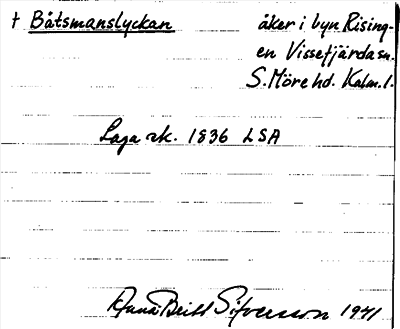 † Båtsmanslyckan åker i byn Rising-
en Vissefjärda sn.
S. Möre hd. Kalm. l.
Laga sk. 1836 LSA
Anna Britt Sifversson 1941